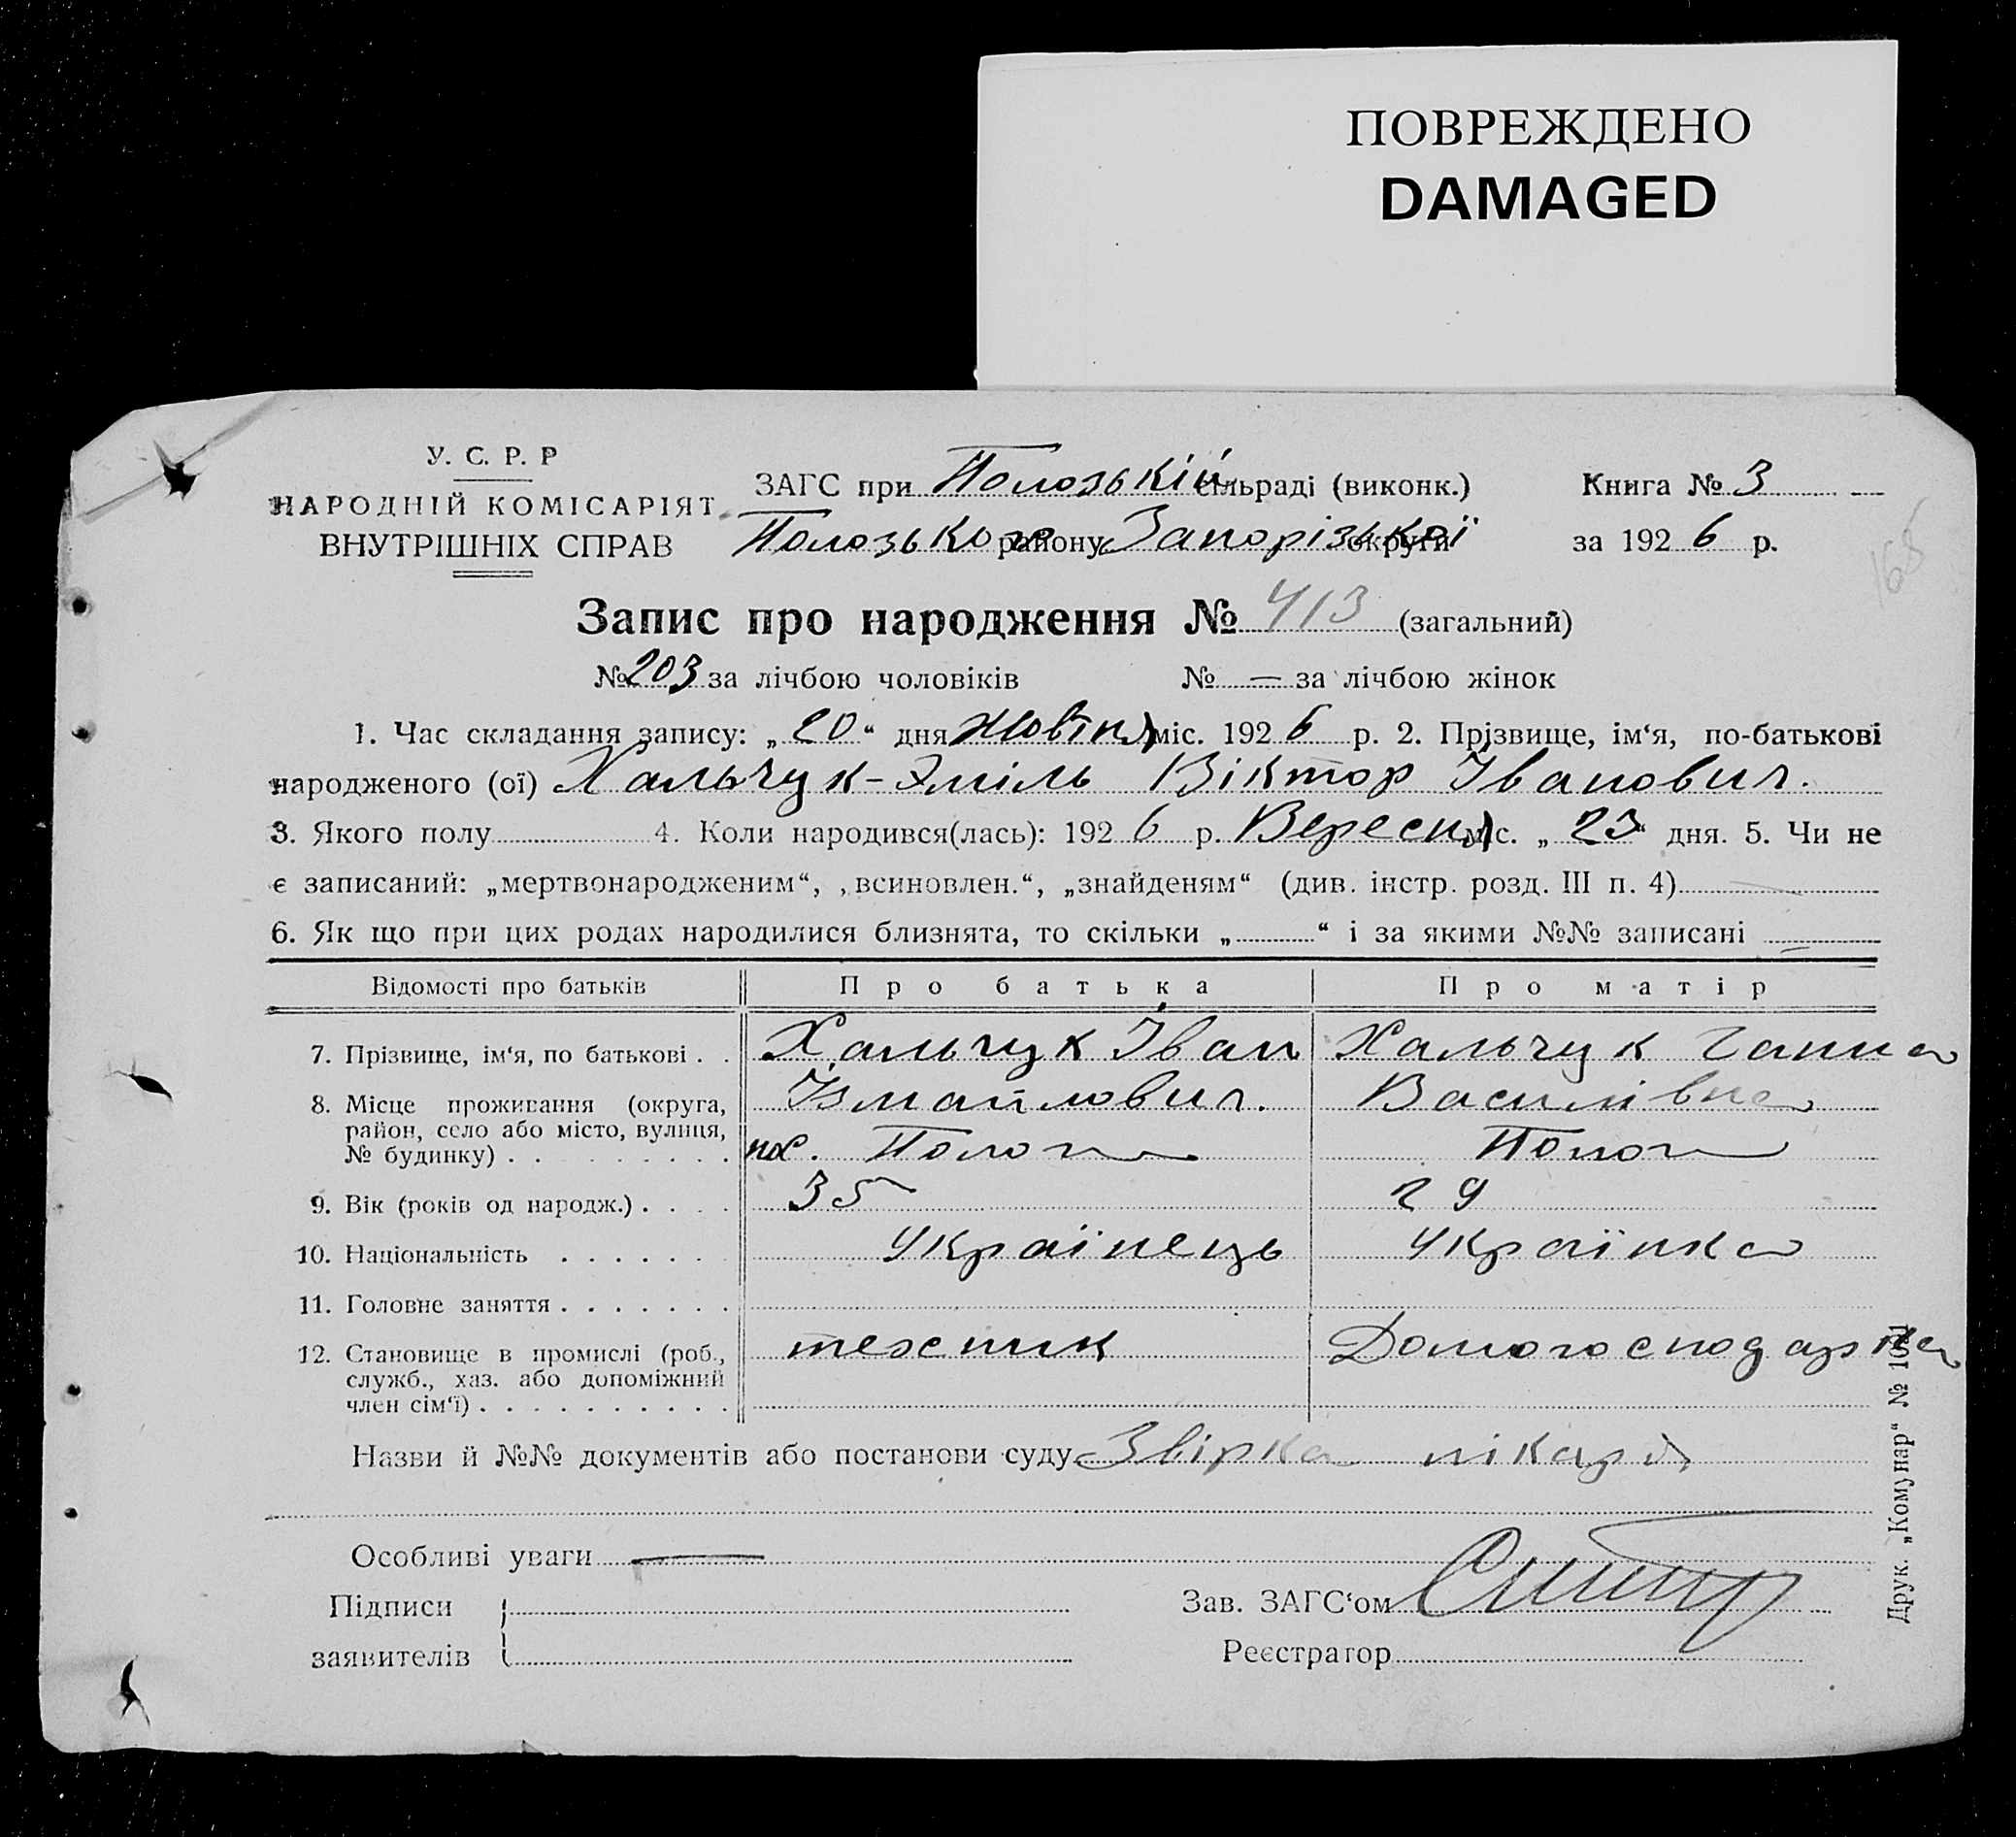 ПОВРЕЖДЕНО
DAMAGED
У. С. Р. Р
НАРОДНІЙ КОМІСАРІЯТ
ВНУТРІШНІХ СПРАВ
ЗАГС при Полозькій сільраді (виконк.)
Полозького району Запорізької округи
Книга № 3
за 1926 р.
168
Запис про народження № 413 (загальний)
№ 203 за лічбою чоловіків № — за лічбою жінок
1. Час складання запису: „20“ дня Жовтня міс. 1926 р. 2. Прізвище, ім‘я, по-батькові
народженого (ої) Хальчук-Эміль Віктор Іванович.
3. Якого полу 4. Коли народився(лась): 1926 р. Вересня міс. „23“ дня. 5. Чи не
є записаний: „мертвонародженим“, „всиновлен.“, „знайденям“ (див. інстр. розд. III п. 4)
6. Як що при цих родах народилися близнята, то скільки „ “ і за якими №№ записані
Відомості про батьків Про батька Про матір
7. Прізвище, ім‘я, по батькові . . Хальчук Іван Хальчук Ганна
Ізмайлович. Василівна
8. Місце проживання (округа,
район, село або місто, вулиця,
№ будинку) . . . . . . . . . пос. Пологи Пологи
9. Вік (років од народж.) . . . . 35 29
10. Національність . . . . . . Українець Українка
11. Головне заняття . . . . . . .
12. Становище в промислі (роб.,
служб., хаз. або допоміжний
член сім‘ї) . . . . . . . . . . техник Домогосподарка
Назви й №№ документів або постанови суду Звірка лікаря
Особливі уваги —
Підписи
заявителів
Зав. ЗАГС‘ом
Реєстратор
Друк. „Комунар“ №